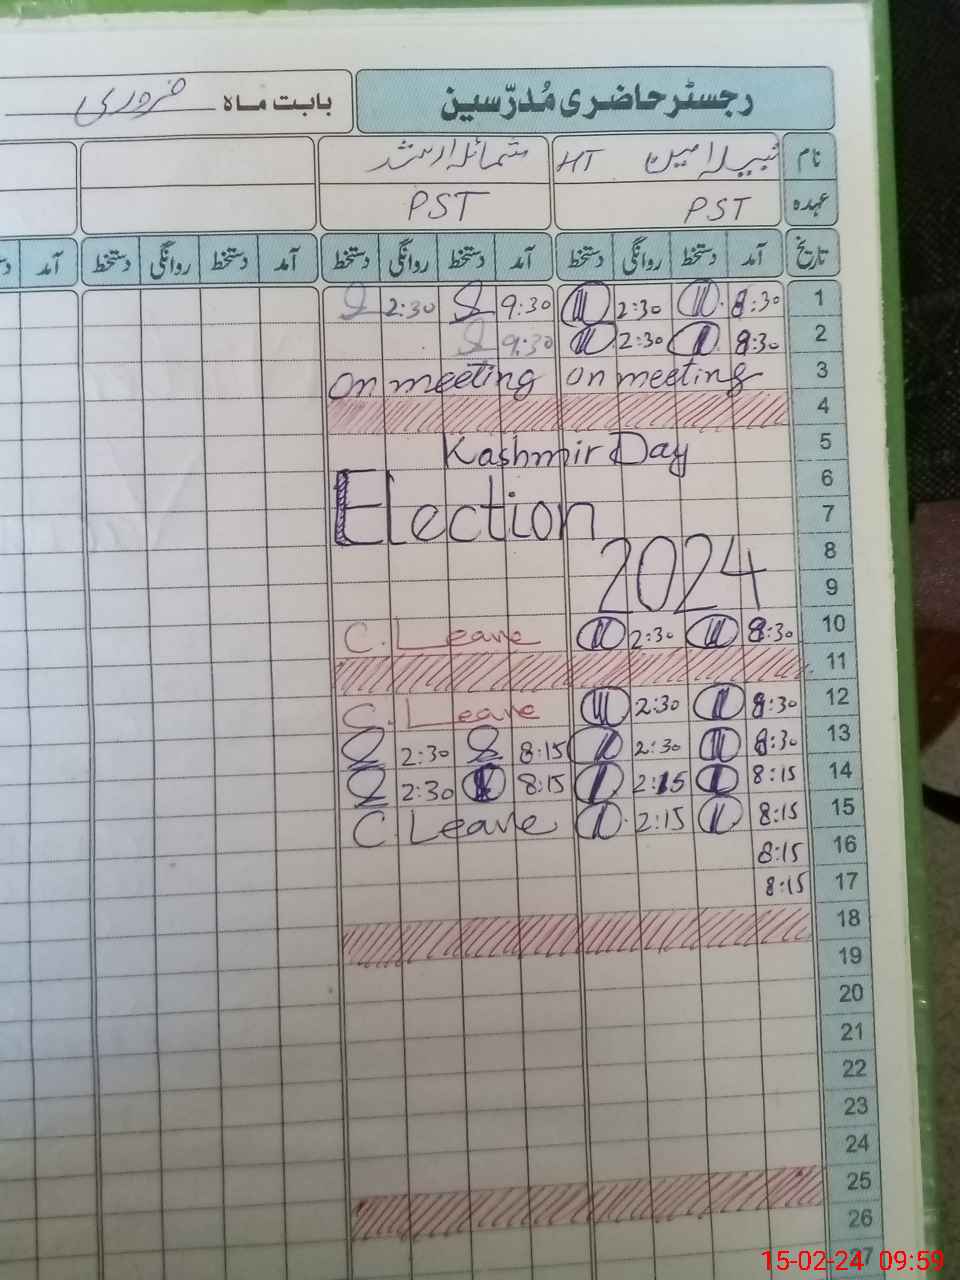 رجسٹر حاضری مُدرّسین بابت ماہ فروری
نام نبیلہ امین HT شمائلہ ارشد
عہدہ PST PST
تاریخ آمد دستخط روانگی دستخط آمد دستخط روانگی دستخط آمد دستخط روانگی دستخط آمد
1 8:30 2:30 9:30 2:30
2 8:30 2:30 9:30
3 on meeting on meeting
4
5 Kashmir Day
6
7 Election
8
9 2024
10 8:30 2:30 C. Leave
11
12 8:30 2:30 C. Leave
13 8:30 2:30 8:15 2:30
14 8:15 2:15 8:15 2:30
15 8:15 2:15 C. Leave
16 8:15
17 8:15
18
19
20
21
22
23
24
25
26
27
15-02-24 09:59